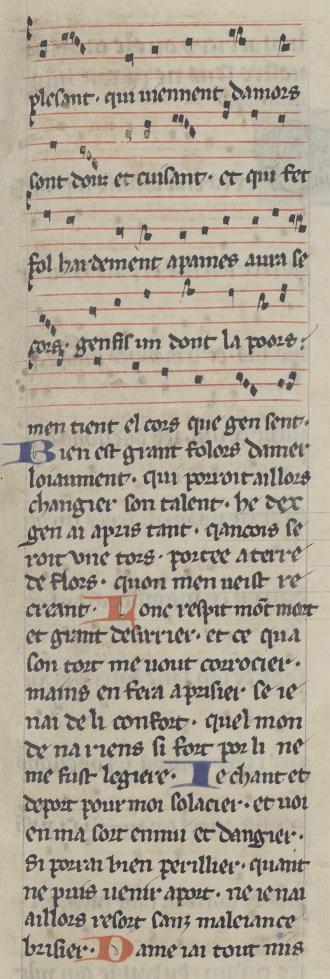 plesant · qui viennent damors
sont douz et cuisant · et qui fet
fol hardement a paines aura se
cors · gensis un dont la poors :
men tient el cors que gen sent ·
Bien est grant folors damer
loiaument · qui porroit aillors
changier son talent · he dex
gen ai apris tant · qancois se
roit vne tors · portee a terre
de flors · quon men veist re
creant · Lonc respit mōt mort
et grant desirrier · et ce qua
son tort me vout corrocier ·
mains en fera aprisier se ie
nai de li confort · quel mon
de na riens si fort por li ne
me fust legiere · Ie chant et
deport pour moi solacier · et voi
en ma sort ennui et dangier ·
si porrai bien perillier · quant
ne puis venir a port · ne ie nai
aillors resort sanz maleiance
brisier · Dame iai tout mis